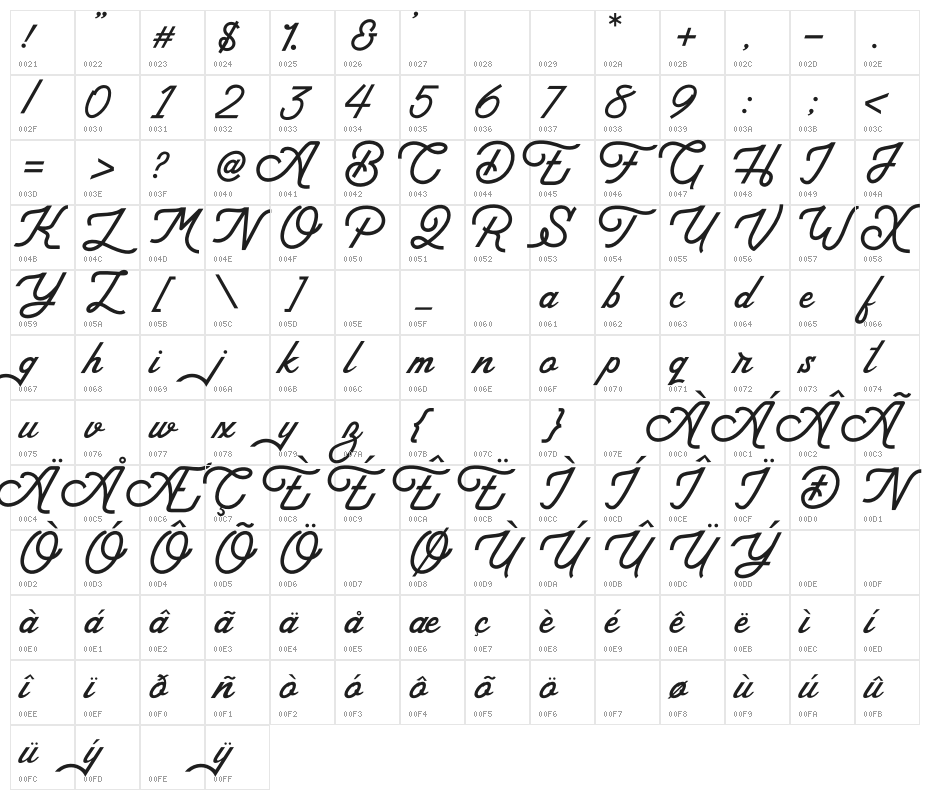 ! " # $ % & ' * + , - .
0021 0022 0023 0024 0025 0026 0027 0028 0029 002A 002B 002C 002D 002E
/ 0 1 2 3 4 5 6 7 8 9 : ; <
002F 0030 0031 0032 0033 0034 0035 0036 0037 0038 0039 003A 003B 003C
= > ? @ A B C D E F G H I J
003D 003E 003F 0040 0041 0042 0043 0044 0045 0046 0047 0048 0049 004A
K L M N O P Q R S T U V W X
004B 004C 004D 004E 004F 0050 0051 0052 0053 0054 0055 0056 0057 0058
Y Z [ \ ] _ a b c d e f
0059 005A 005B 005C 005D 005E 005F 0060 0061 0062 0063 0064 0065 0066
g h i j k l m n o p q r s t
0067 0068 0069 006A 006B 006C 006D 006E 006F 0070 0071 0072 0073 0074
u v w x y z { } À Á Â Ã
0075 0076 0077 0078 0079 007A 007B 007C 007D 007E 00C0 00C1 00C2 00C3
Ä Å Æ Ç È É Ê Ë Ì Í Î Ï Ð N
00C4 00C5 00C6 00C7 00C8 00C9 00CA 00CB 00CC 00CD 00CE 00CF 00D0 00D1
Ò Ó Ô Õ Ö Ø Ù Ú Û Ü Ý
00D2 00D3 00D4 00D5 00D6 00D7 00D8 00D9 00DA 00DB 00DC 00DD 00DE 00DF
à á â ã ä å æ ç è é ê ë ì í
00E0 00E1 00E2 00E3 00E4 00E5 00E6 00E7 00E8 00E9 00EA 00EB 00EC 00ED
î ï ð ñ ò ó ô õ ö ø ù ú û
00EE 00EF 00F0 00F1 00F2 00F3 00F4 00F5 00F6 00F7 00F8 00F9 00FA 00FB
ü ý ÿ
00FC 00FD 00FE 00FF